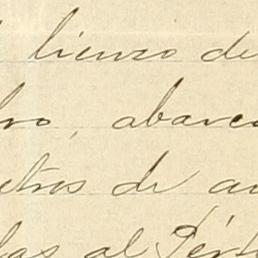 lienzo de
bro, abarca
etros de a
las al Pért